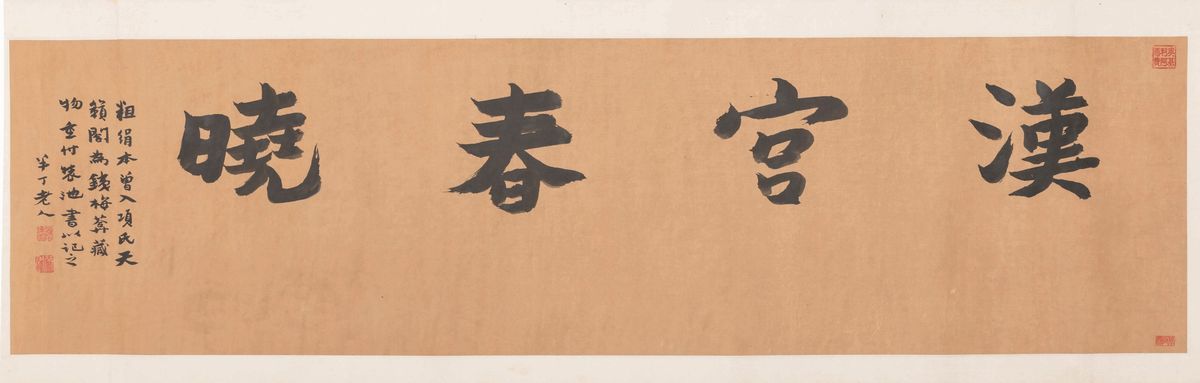 漢宮春曉
粗絹本曾入項氏天
籟閣為錢梅葊藏
物重付裝池書以記之
半丁老人